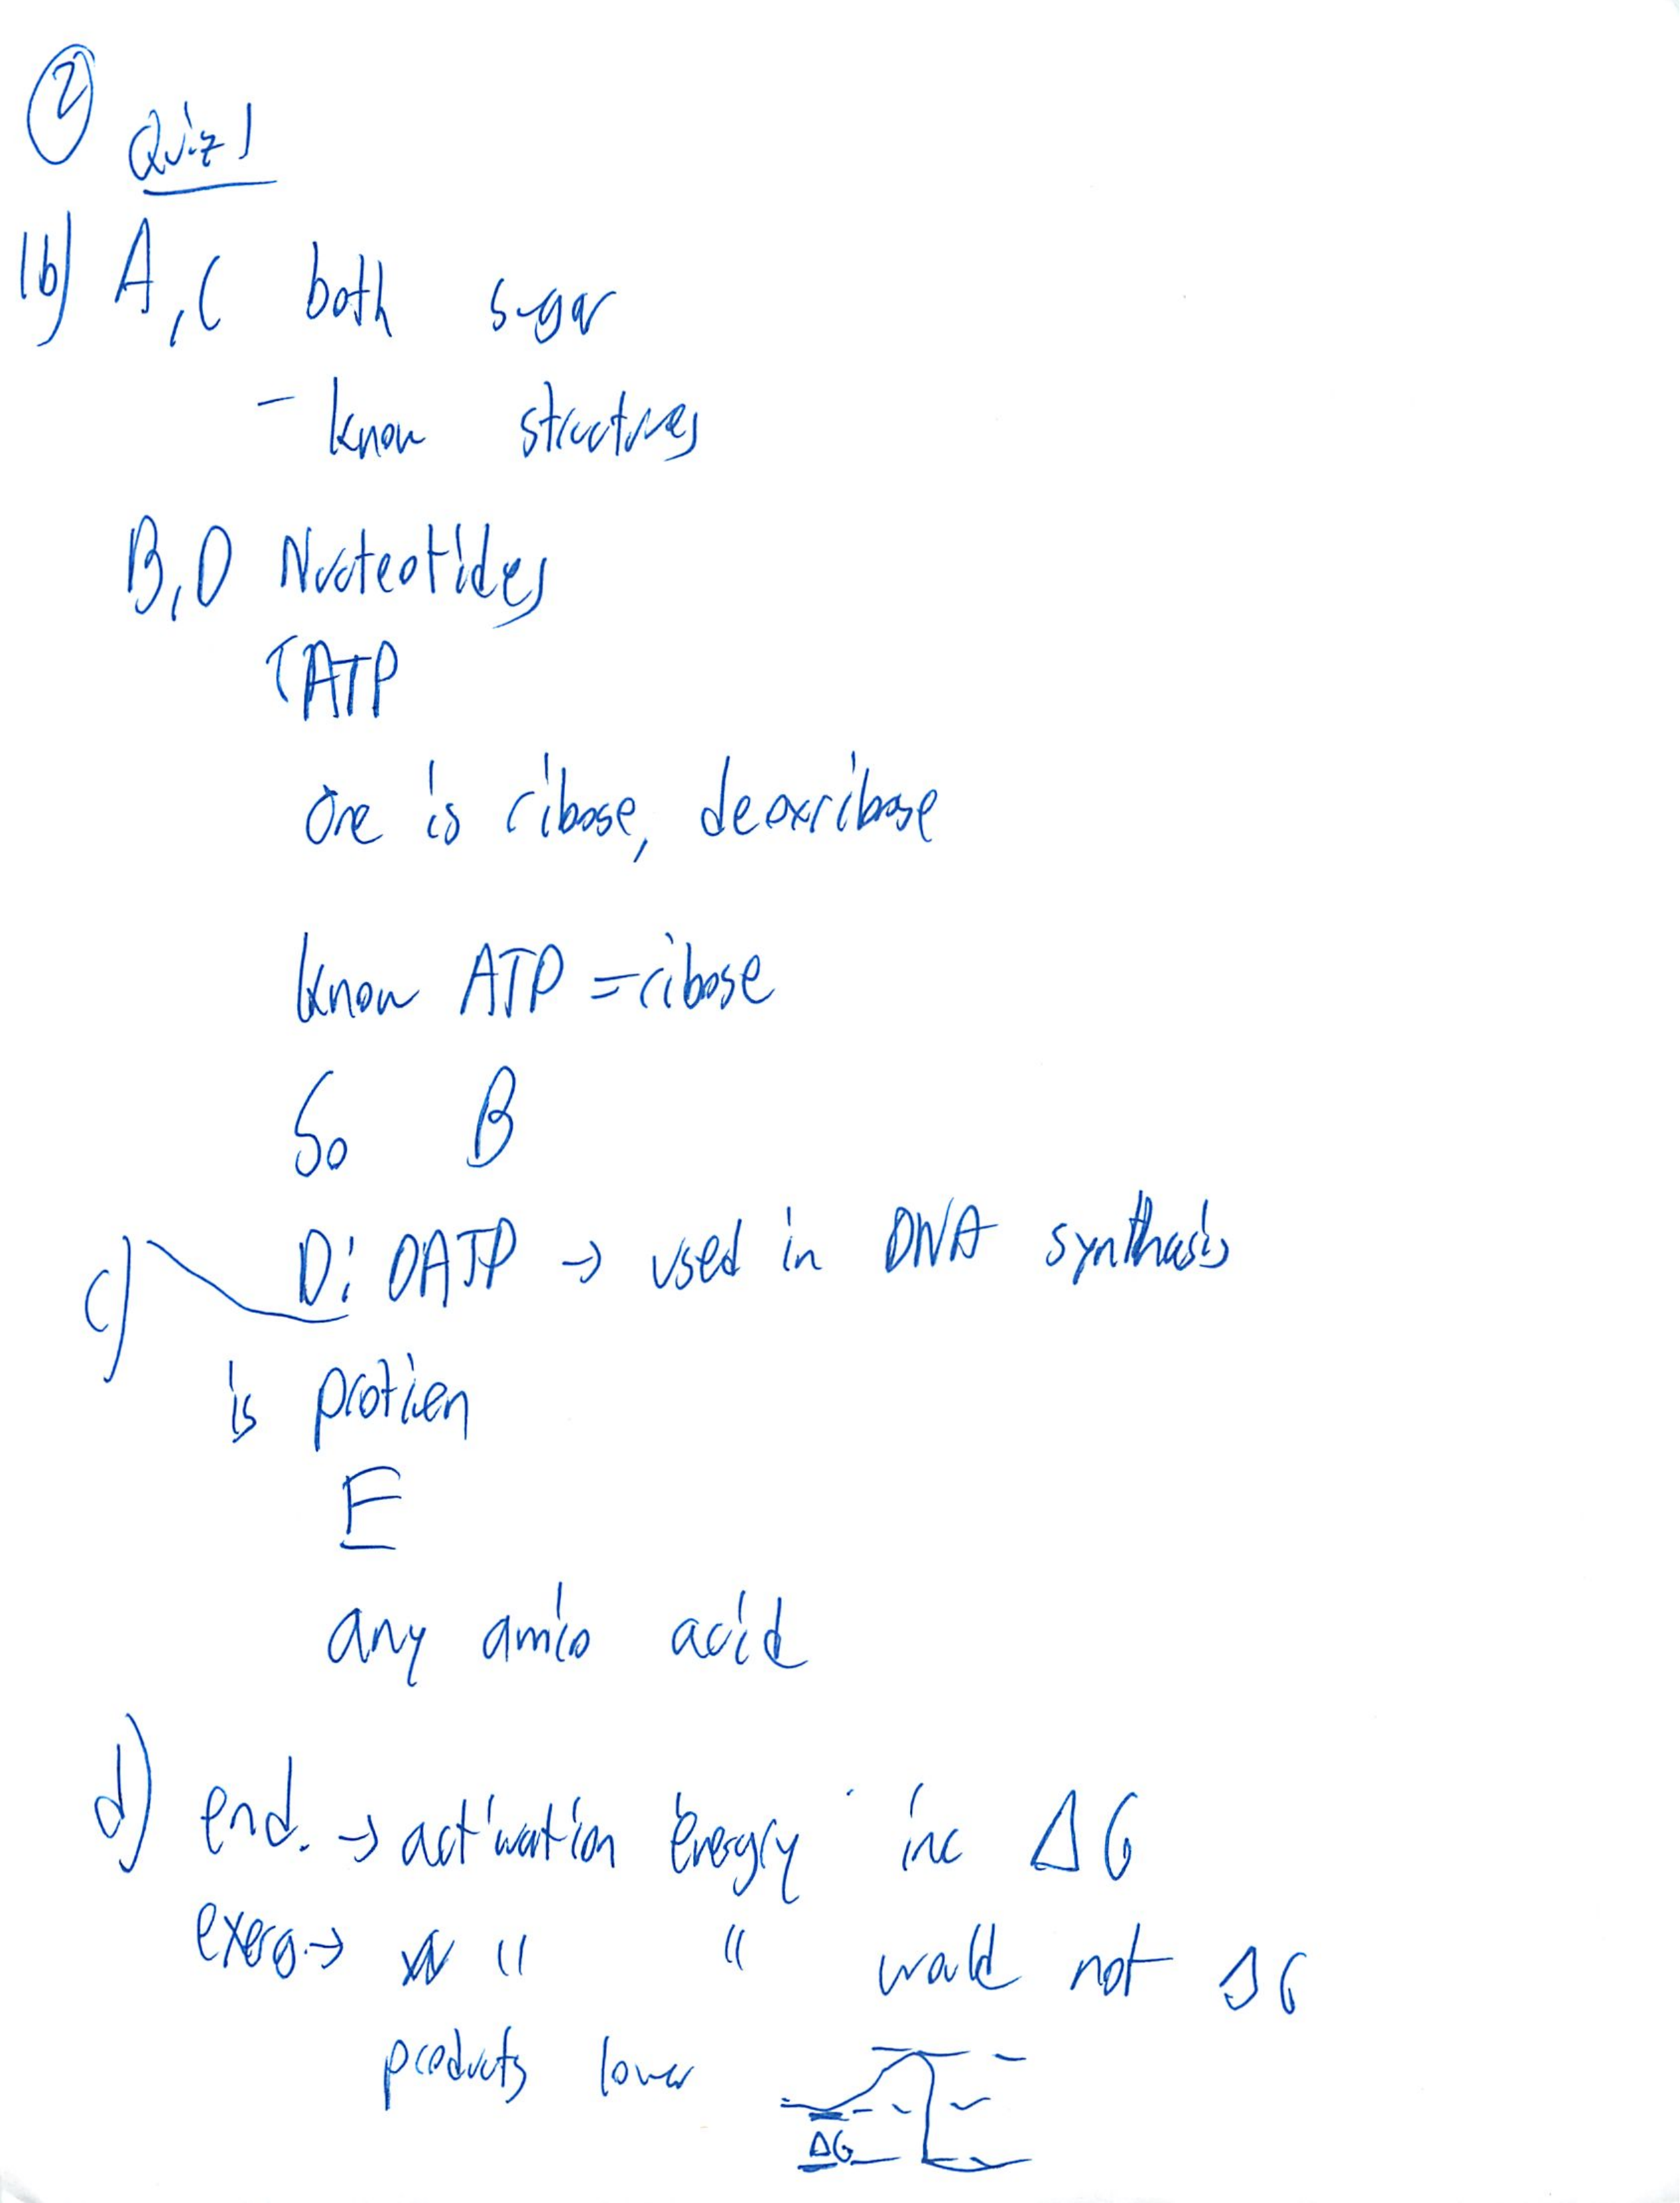 2
Quiz 1
1b) A, C both sugar
- know structures
B, D Nucleotides
ATP
One is ribose, deoxribose
know ATP = ribose
So B
c) D: DATP → used in DNA synthesis
is protien
E
any amio acid
d) end. → activation energy inc ΔG
exerg. → " " would not ΔG
products lower
ΔG